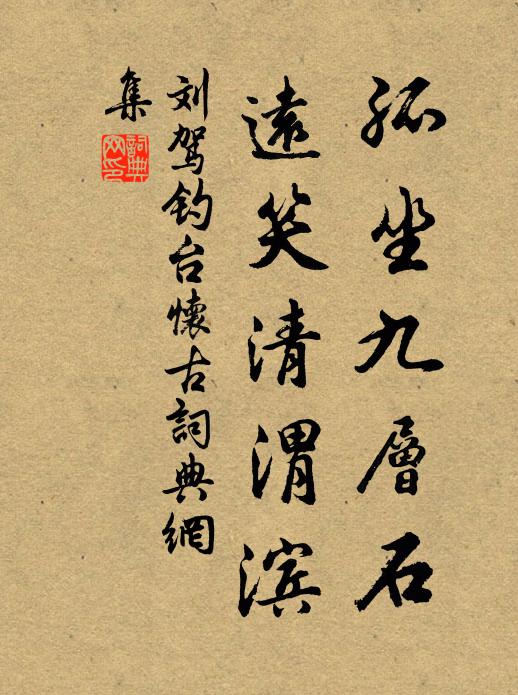 孤坐九層石
遠笑清渭滨
刘駕钓台懷古詞典網
集
詞典网印